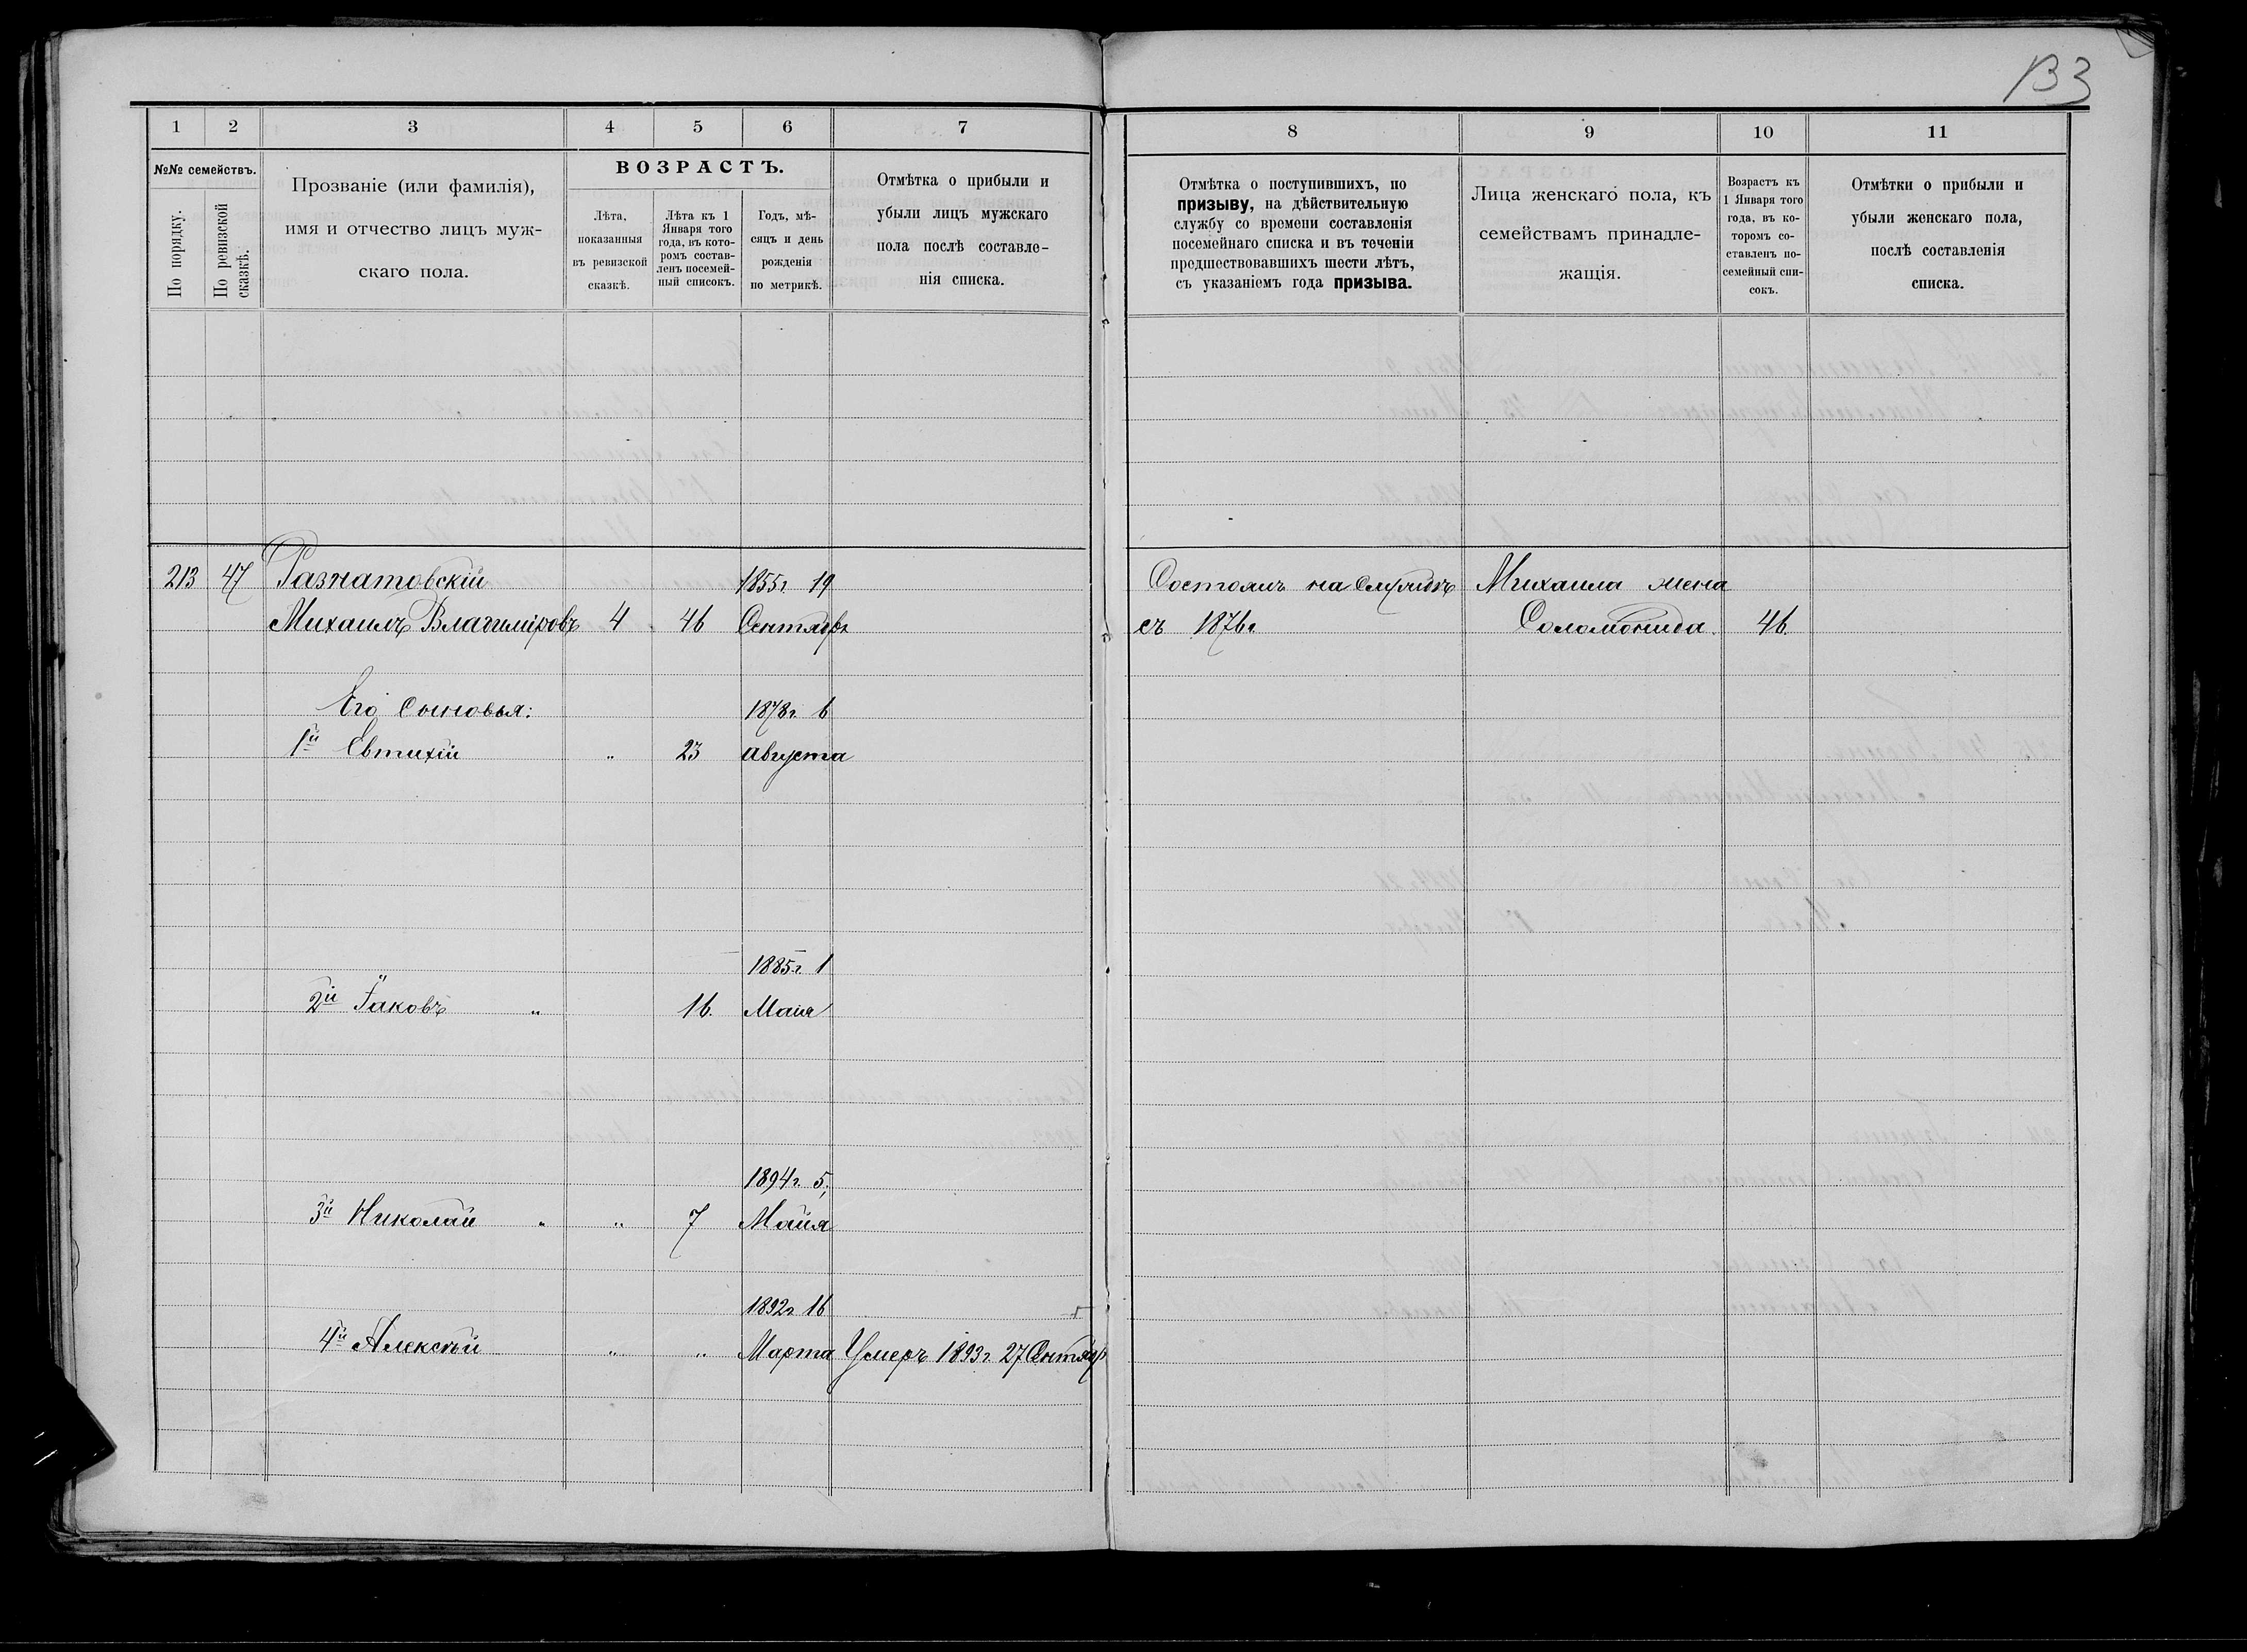 133
1 2 3 4 5 6 7
№№ семействъ.
По порядку.
По ревизской сказкѣ.
Прозваніе (или фамилія),
имя и отчество лицъ муж-
скаго пола.
ВОЗРАСТЪ.
Лѣта,
показанныя
въ ревизской
сказкѣ.
Лѣта къ 1
Января того
года, въ кото-
ромъ состав-
ленъ посемей-
ный списокъ.
Годъ, мѣ-
сяцъ и день
рожденія
по метрикѣ.
Отмѣтка о прибыли и
убыли лицъ мужскаго
пола послѣ составле-
нія списка.
8 9 10 11
Отмѣтка о поступившихъ, по
призыву, на дѣйствительную
службу со времени составленія
посемейнаго списка и въ теченіи
предшествовавшихъ шести лѣтъ,
съ указаніемъ года призыва.
Лица женскаго пола, къ
семействамъ принадле-
жащія.
Возрастъ къ
1 Января того
года, въ ко-
торомъ со-
ставленъ по-
семейный спи-
сокъ.
Отмѣтки о прибыли и
убыли женскаго пола,
послѣ составленія
списка.
213 47 Разнатовскій 1855г. 19
Михаилъ Владиміровъ 4 46 Сентября
Его сыновья: 1878г. 6
1й Евтихій " 23 августа
1885г. 1
2й Іаковъ " 16. Маія
1894г. 5,
3й Николай " " 7 Маія
1892г 16
4й Алексѣй " " Марта Умеръ 1893г. 27 Сентяб
Состоялъ на службѣ Михаила жена
съ 1876г. Соломонида. 46.